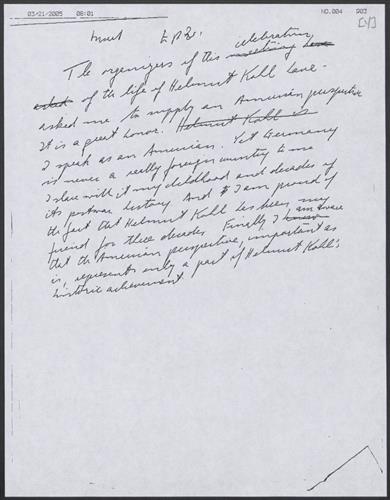 03/21/2005 08:01 NO.004 P03
[V]
Insert
celebration
The organizers of this meeting have
asked of the life of Helmut Kohl have
asked me to supply an American perspective
It is a great honor. Helmut Kohl is
I speak as an American. Yet Germany
is never a really foreign country to me
I share with it my childhood and decades of
its postwar history. And I am proud of
the fact that Helmut Kohl has been my
friend for three decades. Finally, I know am aware
that the American perspective, important as
is, represents only a part of Helmut Kohl's
historic achievement.